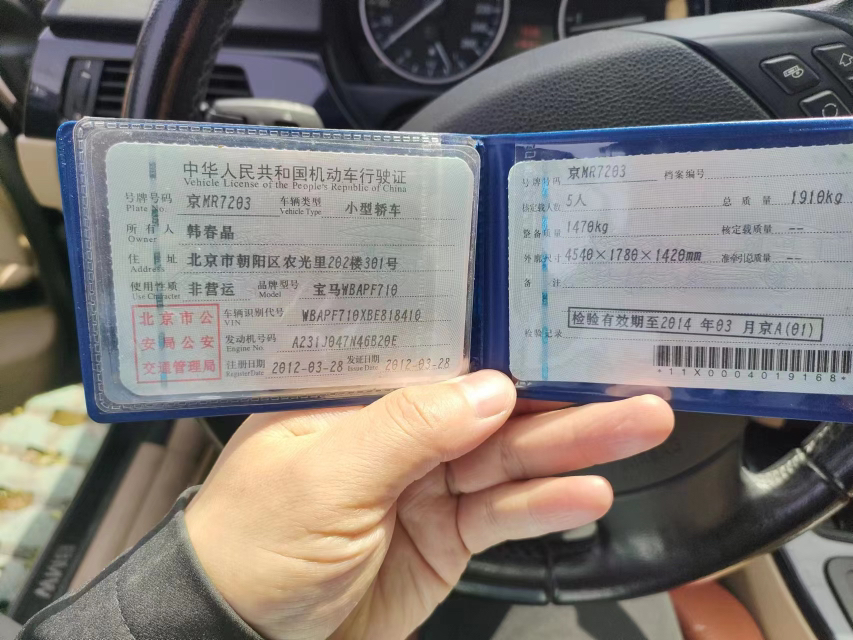 中华人民共和国机动车行驶证
Vehicle License of the People's Republic of China
号牌号码 京MR7203 车辆类型 小型轿车
Plate No. Vehicle Type
所有人 韩春晶
Owner
住址 北京市朝阳区农光里202楼301号
Address
使用性质 非营运 品牌型号 宝马WBAPF710
Use Character Model
北京市公
安局公安
交通管理局
车辆识别代号 WBAPF710XBE818410
VIN
发动机号码 A231J047N46B20E
Engine No.
注册日期 2012-03-28 发证日期 2012-03-28
Register Date Issue Date
号牌号码 京MR7203 档案编号
核定载人数 5人 总质量 1910kg
整备质量 1470kg 核定载质量 --
外廓尺寸 4540×1780×1420mm 准牵引总质量 --
备注
检验记录 检验有效期至2014年03月京A(01)
*11X0004019168*